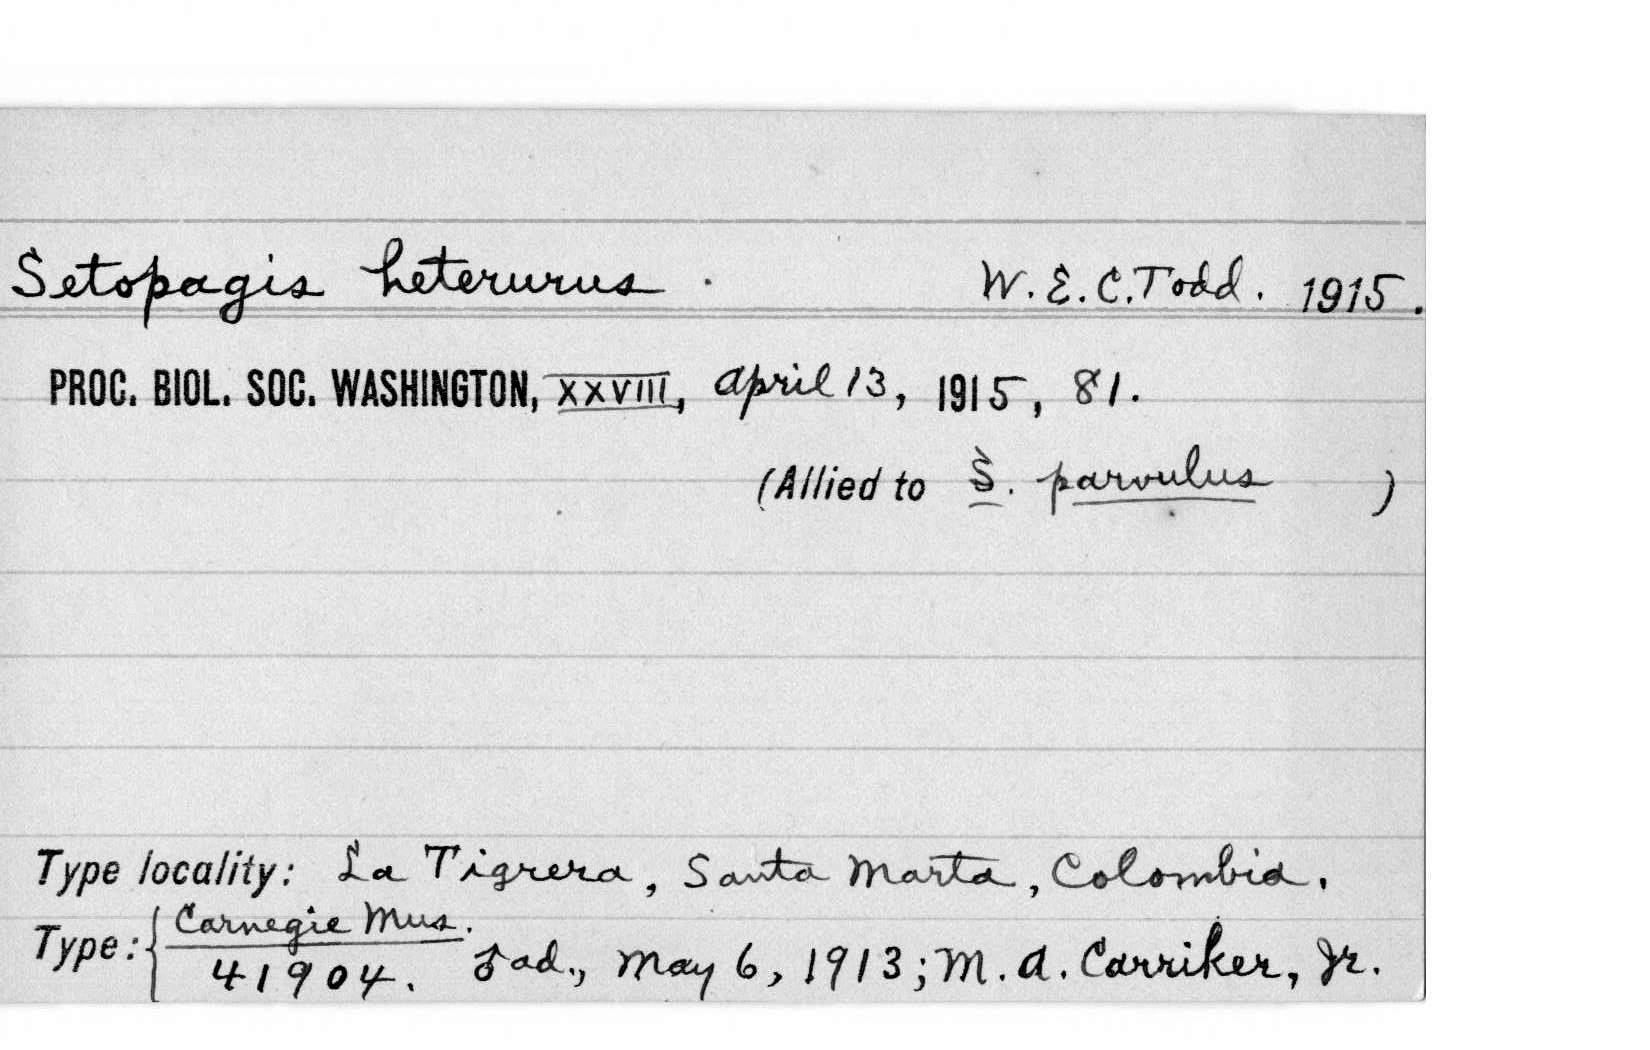 Setopagis heterurus. W. E. C. Todd. 1915.
PROC. BIOL. SOC. WASHINGTON, XXVIII, April 13, 1915, 81.
(Allied to S. parvulus )
Type locality: La Tigrera, Santa Marta, Colombia.
Type: { Carnegie Mus.
41904. ♂ ad., May 6, 1913; M. A. Carriker, Jr.